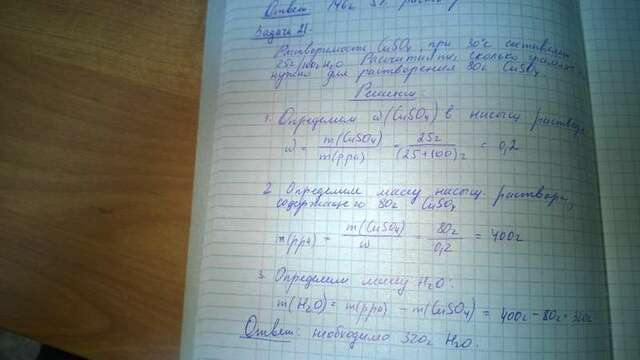 Ответ 146г 5% раствор
Задача 21
Растворимость CuSO₄ при 30°с составляет
25г/100г H₂O Рассчитайте, сколько грамм
нужно для растворения 80г CuSO₄
Решение:
1. Определим ω(CuSO₄) в насыщ растворе
ω = m(CuSO₄)/m(рра) = 25г/(25+100)г = 0,2
2 Определим массу насыщ раствора,
содержащего 80г CuSO₄
m(рра) = m(CuSO₄)/ω = 80г/0,2 = 400г
3. Определим массу H₂O:
m(H₂O) = m(рра) - m(CuSO₄) = 400г - 80г = 320г
Ответ: необходимо 320г H₂O.